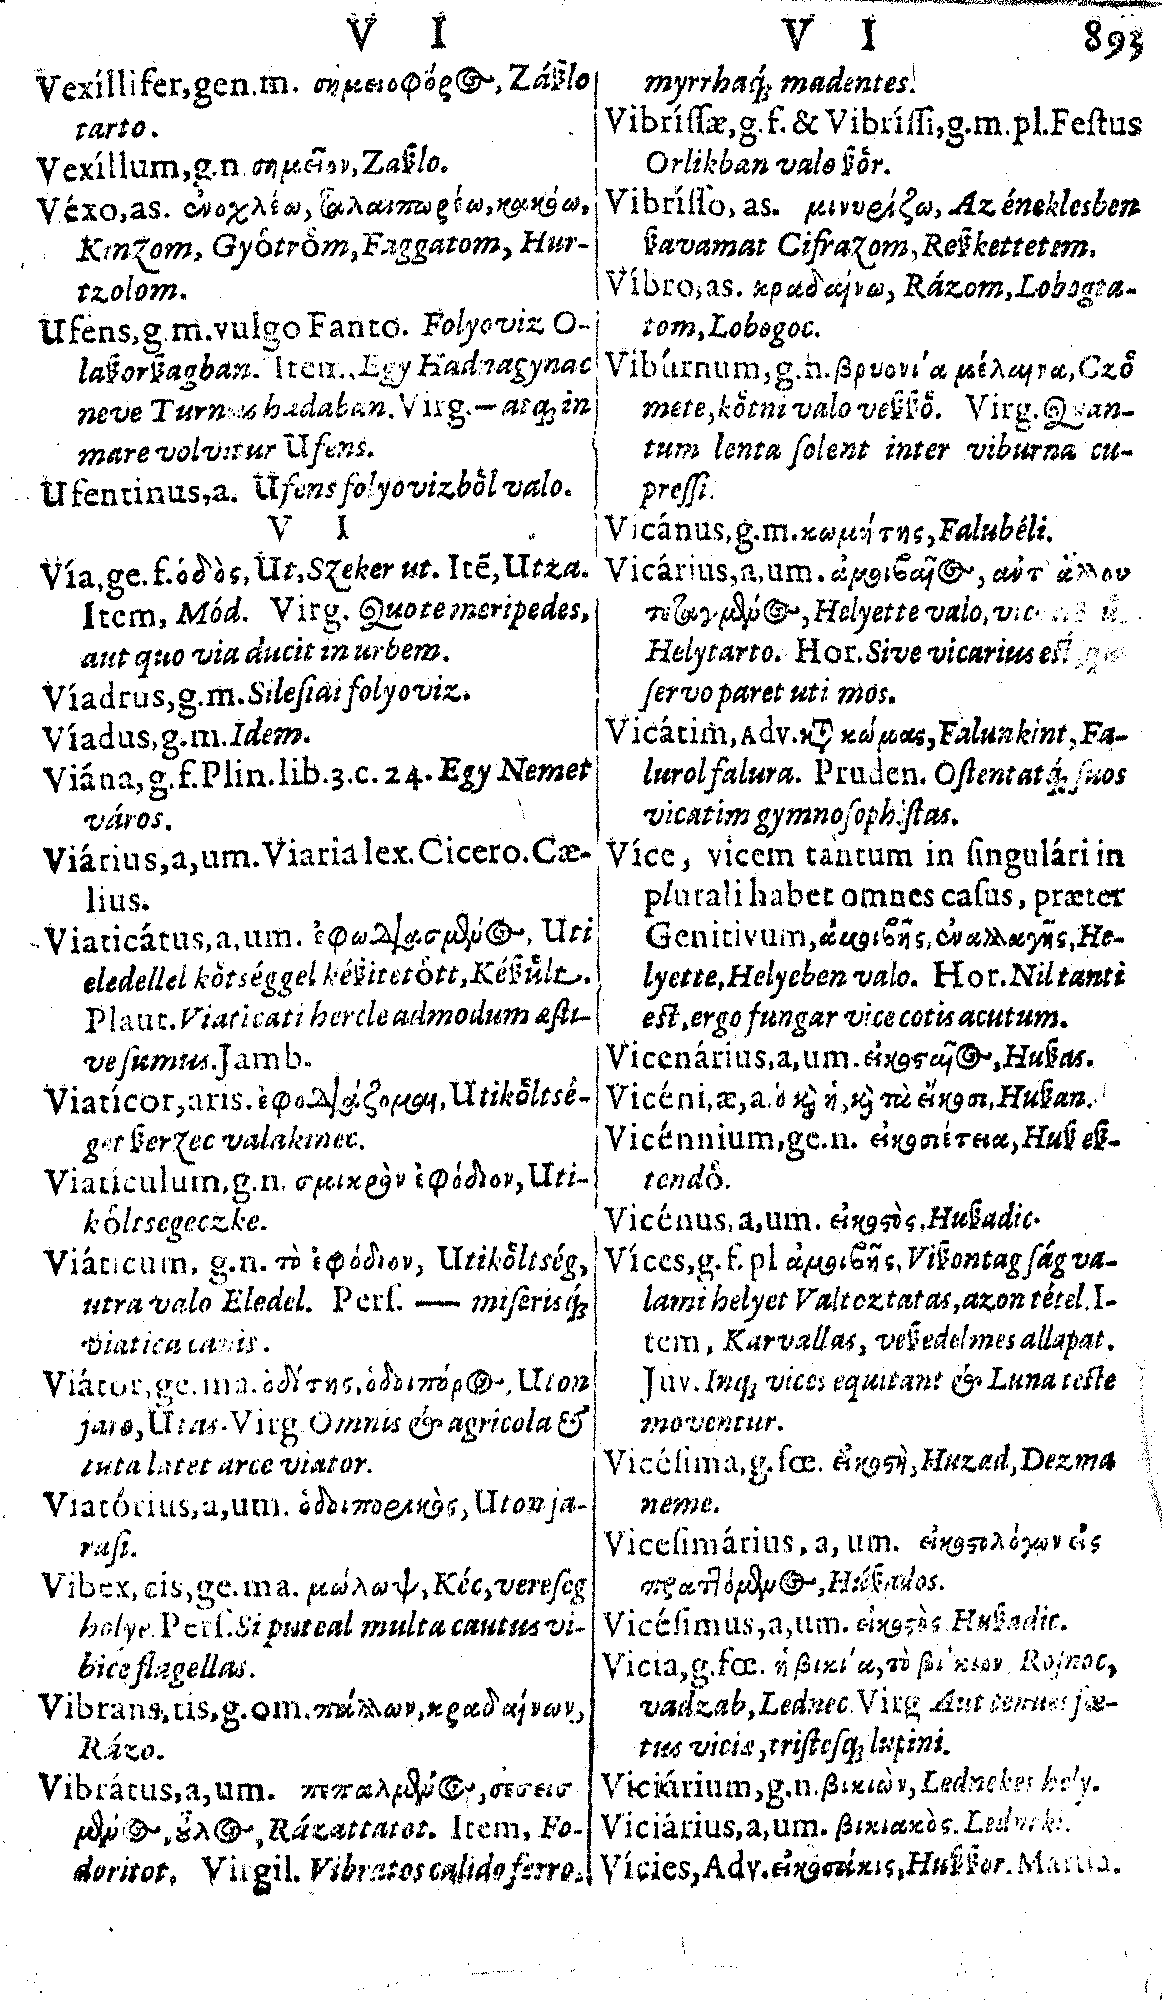 V I
V I
893
Vexíllifer,gen.m. σημειοφόρος, Záſzlo
tarto.
Vexíllum,g.n. σημεῖον, Zaſzlo.
Véxo,as. ἐνοχλέω, ταλαιπωρέω, κακόω,
Kinzom, Gyótrőm, Faggatom, Hur-
tzolom.
Ufens,g.m.vulgo Fanto. Folyoviz O-
laſzorſzagban. Item, Egy Hadnagynac
neve Turnus hadaban. Virg.— atq; in
mare volvitur Ufens.
Ufentinus,a. Ufens folyovizből valo.
V I
Vía,ge.f.ὁδὸς, Ut, Szeker ut. Itē, Utza.
Item, Mód. Virg. Quote meri pedes,
aut quo via ducit in urbem.
Víadrus,g.m. Sileſiai folyoviz.
Víadus,g.m. Idem.
Viána,g.f.Plin.lib.3.c.24. Egy Nemet
város.
Viárius,a,um. Viaria lex. Cicero. Cæ-
lius.
Viaticátus,a,um. ἐφωδιασμένος, Uti
eledellel kőtséggel kéſzitetőtt, Kéſzűlt.
Plaut. Viaticati hercle admodum æſti-
ve ſumus. Jamb.
Viatícor,aris. ἐφοδιάζομαι, Utikőltsé-
get ſzerzec valakinec.
Viatículum,g.n. σμικρὸν ἐφόδιον, Uti-
kőltsegeczke.
Viáticum, g.n. τὸ ἐφόδιον, Utikőltség,
utra valo Eledel. Perſ. — miſerisq;
viatica canis.
Viátor,ge.ma. ὁδίτης, ὁδοιπόρος, Uton
jaro, Utas. Virg Omnis & agricola &
tuta latet arce viator.
Viatórius,a,um. ὁδοιπορικὸς, Uton ja-
raſi.
Vibex,cis,ge.ma. μώλωψ, Kéc, vereſeg
helye. Perſ. Si puteal multa cautus vi-
bice flagellas.
Vibrans,tis,g.om. πάλλων, κραδαίνων,
Rázo.
Vibrátus,a,um. πεπαλμένος, σεσεισ
μένος, ὖλος, Rázattatot. Item, Fo-
doritot. Virgil. Vibratos calido ferro,
myrrhaq; madentes.
Vibríſſæ,g.f. & Vibríſſi,g.m.pl. Feſtus
Orlikban valo ſzőr.
Vibríſſo, as. μινυρίζω, Az éneklesben
ſzavamat Cifrazom, Reſzkettetem.
Víbro,as. κραδαίνω, Rázom, Lobogta-
tom, Lobogoc.
Vibúrnum,g.n. βρυονία μέλαινα, Cző
mete, kőtni valo veſzſző. Virg. Quan-
tum lenta ſolent inter viburna cu-
preſſi.
Vicánus,g.m. κωμήτης, Falubéli.
Vicárius,a,um. ἀμοιβαῖος, αντ' ἄλλου
Helyette valo,
Helytarto. Hor. Sive vicarius eſt
ſervo paret uti mos.
Vicátim, Adv. κτ̀ κώμας, Falunkint, Fa-
lurol falura. Pruden. Oſtentatq; ſuos
vicatim gymnoſophiſtas.
Více, vicem tantum in ſingulári in
plurali habet omnes caſus, præter
Genitivum, ἀμοιβῆς, ἐναλλαγῆς, He-
lyette, Helyeben valo. Hor. Nil tanti
eſt, ergo fungar vice cotis acutum.
Vicenárius,a,um. εἰκοσαῖος, Huſzas.
Vicéni,æ,a. ὁ κỳ ἡ, κỳ τὰ εἴκοσι, Huſzan.
Vicénnium,ge.n. εἰκοσιέτεια, Huſz eſz-
tendő.
Vicénus,a,um. εἰκοστὸς, Huſzadic.
Víces,g.f. pl ἀμοιβῆς, Viſzontagſág va-
lami helyet Valtoztatas, azon tétel. I-
tem, Karvallas, veſzedelmes allapat.
Juv. Inq; vices equitant & Luna teſte
moventur.
Vicéſima,g.fœ. εἰκοστὴ, Huzad, Dezma
neme.
Viceſimárius, a, um. εἰκοστολόγων εἰς
πραττόμενος, Huſzados.
Vicéſimus,a,um. εἰκοστὸς Huſzadic.
Vicia,g.fœ. ἡ βικία, τὸ βίκιον Rojnoc,
vadzab, Lednec Virg Aut tenues fœ-
tus viciæ, triſteſq; lupini.
Viciárium,g.n. βικιὼν, Lednekes hely.
Viciárius,a,um. βικιακὸς. Ledneki.
Vícies, Adv. εἰκοσάκις, Huſzſzor. Martia.